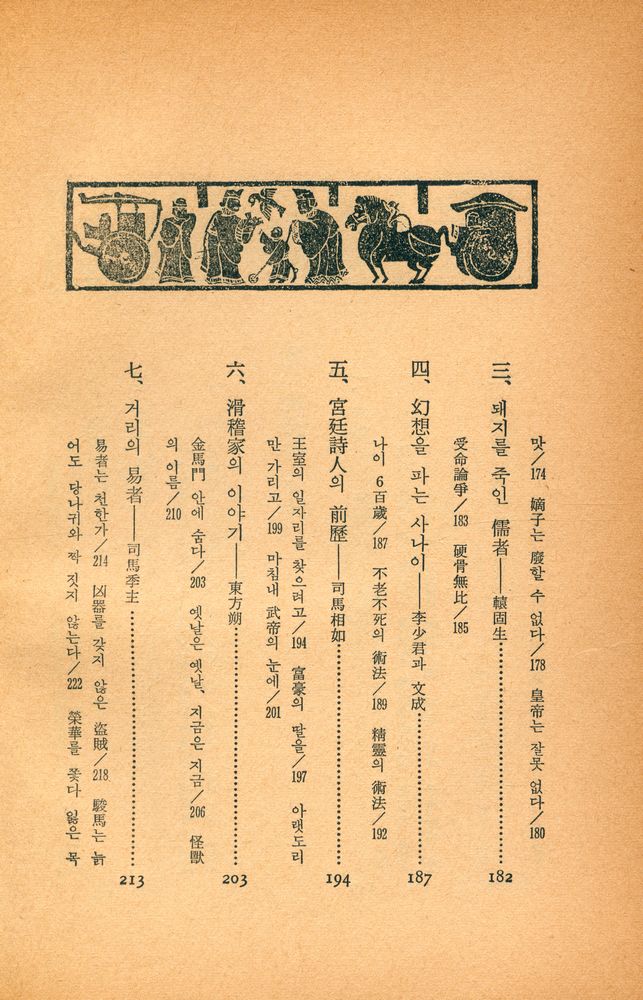 맛/174 嫡子는 廢할 수 없다/178 皇帝는 잘못 없다/180
三、돼지를 죽인 儒者──轅固生 182
受命論爭/183 硬骨無比/185
四、幻想을 파는 사나이──李少君과 文成 187
나이 6百歲/187 不老不死의 術法/189 精靈의 術法/192
五、宮廷詩人의 前歷──司馬相如 194
王室의 일자리를 찾으려고/194 富豪의 딸을/197 아랫도리
만 가리고/199 마침내 武帝의 눈에/201
六、滑稽家의 이야기──東方朔 203
金馬門 안에 숨다/203 옛날은 옛날、지금은 지금/206 怪獸
의 이름/210
七、거리의 易者──司馬季主 213
易者는 천한가/214 凶器를 갖지 않은 盜賊/218 駿馬는 늙
어도 당나귀와 짝 짓지 않는다/222 榮華를 쫓다 잃은 목